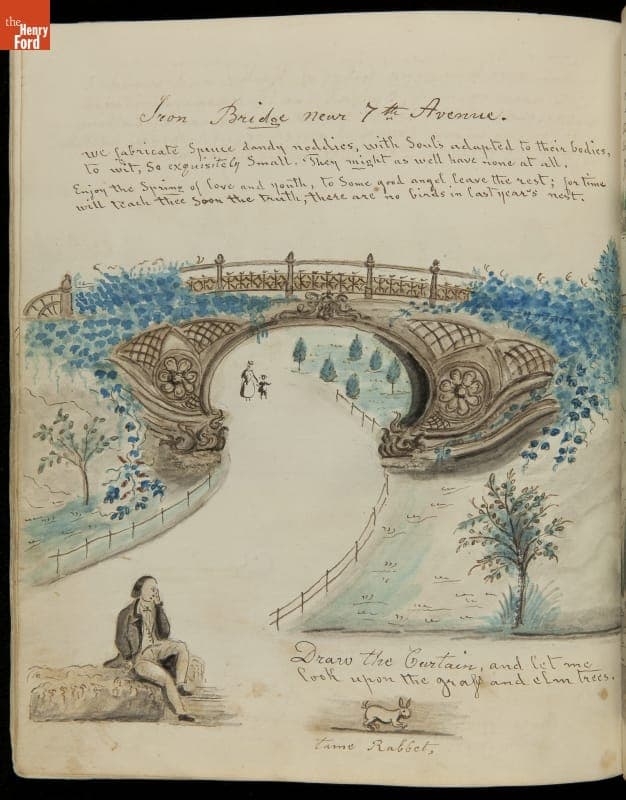 the
Henry
Ford
Iron Bridge near 7th Avenue.
we fabricate Spruce dandy noddies, with Souls adapted to their bodies,
to wit, So exquisitely Small. They might as well have none at all.
Enjoy the Spring of love and youth, to Some good angel leave the rest; for time
will teach thee Soon the truth, there are no birds in last year's nest.
Draw the Curtain, and let me
look upon the grass and elm trees.
tame Rabbet,